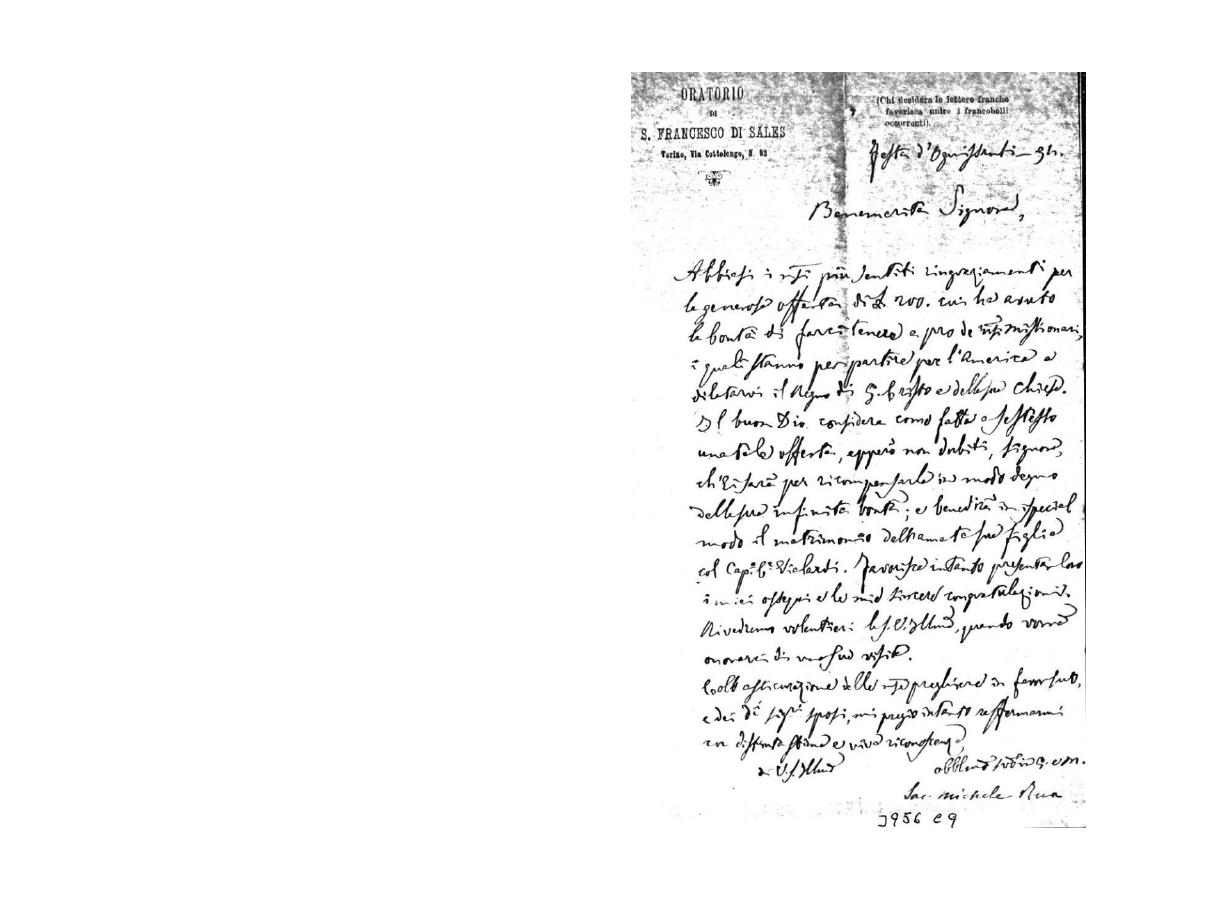 ORATORIO
DI
S. FRANCESCO DI SALES
Torino, Via Cottolengo, N. 32
(Chi desidera le lettere franche
favorisca unire i francobolli
occorrenti).
Festa d'Ognissanti - 94.
Benemerita Signora,
Abbiasi i nsi più sentiti ringraziamenti per
la generosa offerta di £ 200. cui ha avuto
la bontà di farci tenere a pro de nsi missionari,
i quali stanno per partire per l'America a
dilatarvi il Regno di G. Cristo e della sua Chiesa.
Il buon Dio considera come fatta a se stesso
una tale offerta, epperò non dubiti, Signora,
ch'Ei sarà per ricompensarla in modo degno
della sua infinita bontà; e benedirà in ispecial
modo il matrimonio dell'amata sua figlia
col Cap. Vialardi. Favorisca intanto presentar loro
i miei ossequi e le mie sincere congratulazioni.
Rivedremo volentieri la S. V. Illma, quando vorrà
onorarci di una sua visita.
Colla assicurazione delle nse preghiere in favor suo,
e dei di sigri sposi, mi pregio intanto raffermarmi
con distinta stima e viva riconoscenza
di V. S. Illma
obblmo in G. e M.
Sac. Michele Rua
3956 C9